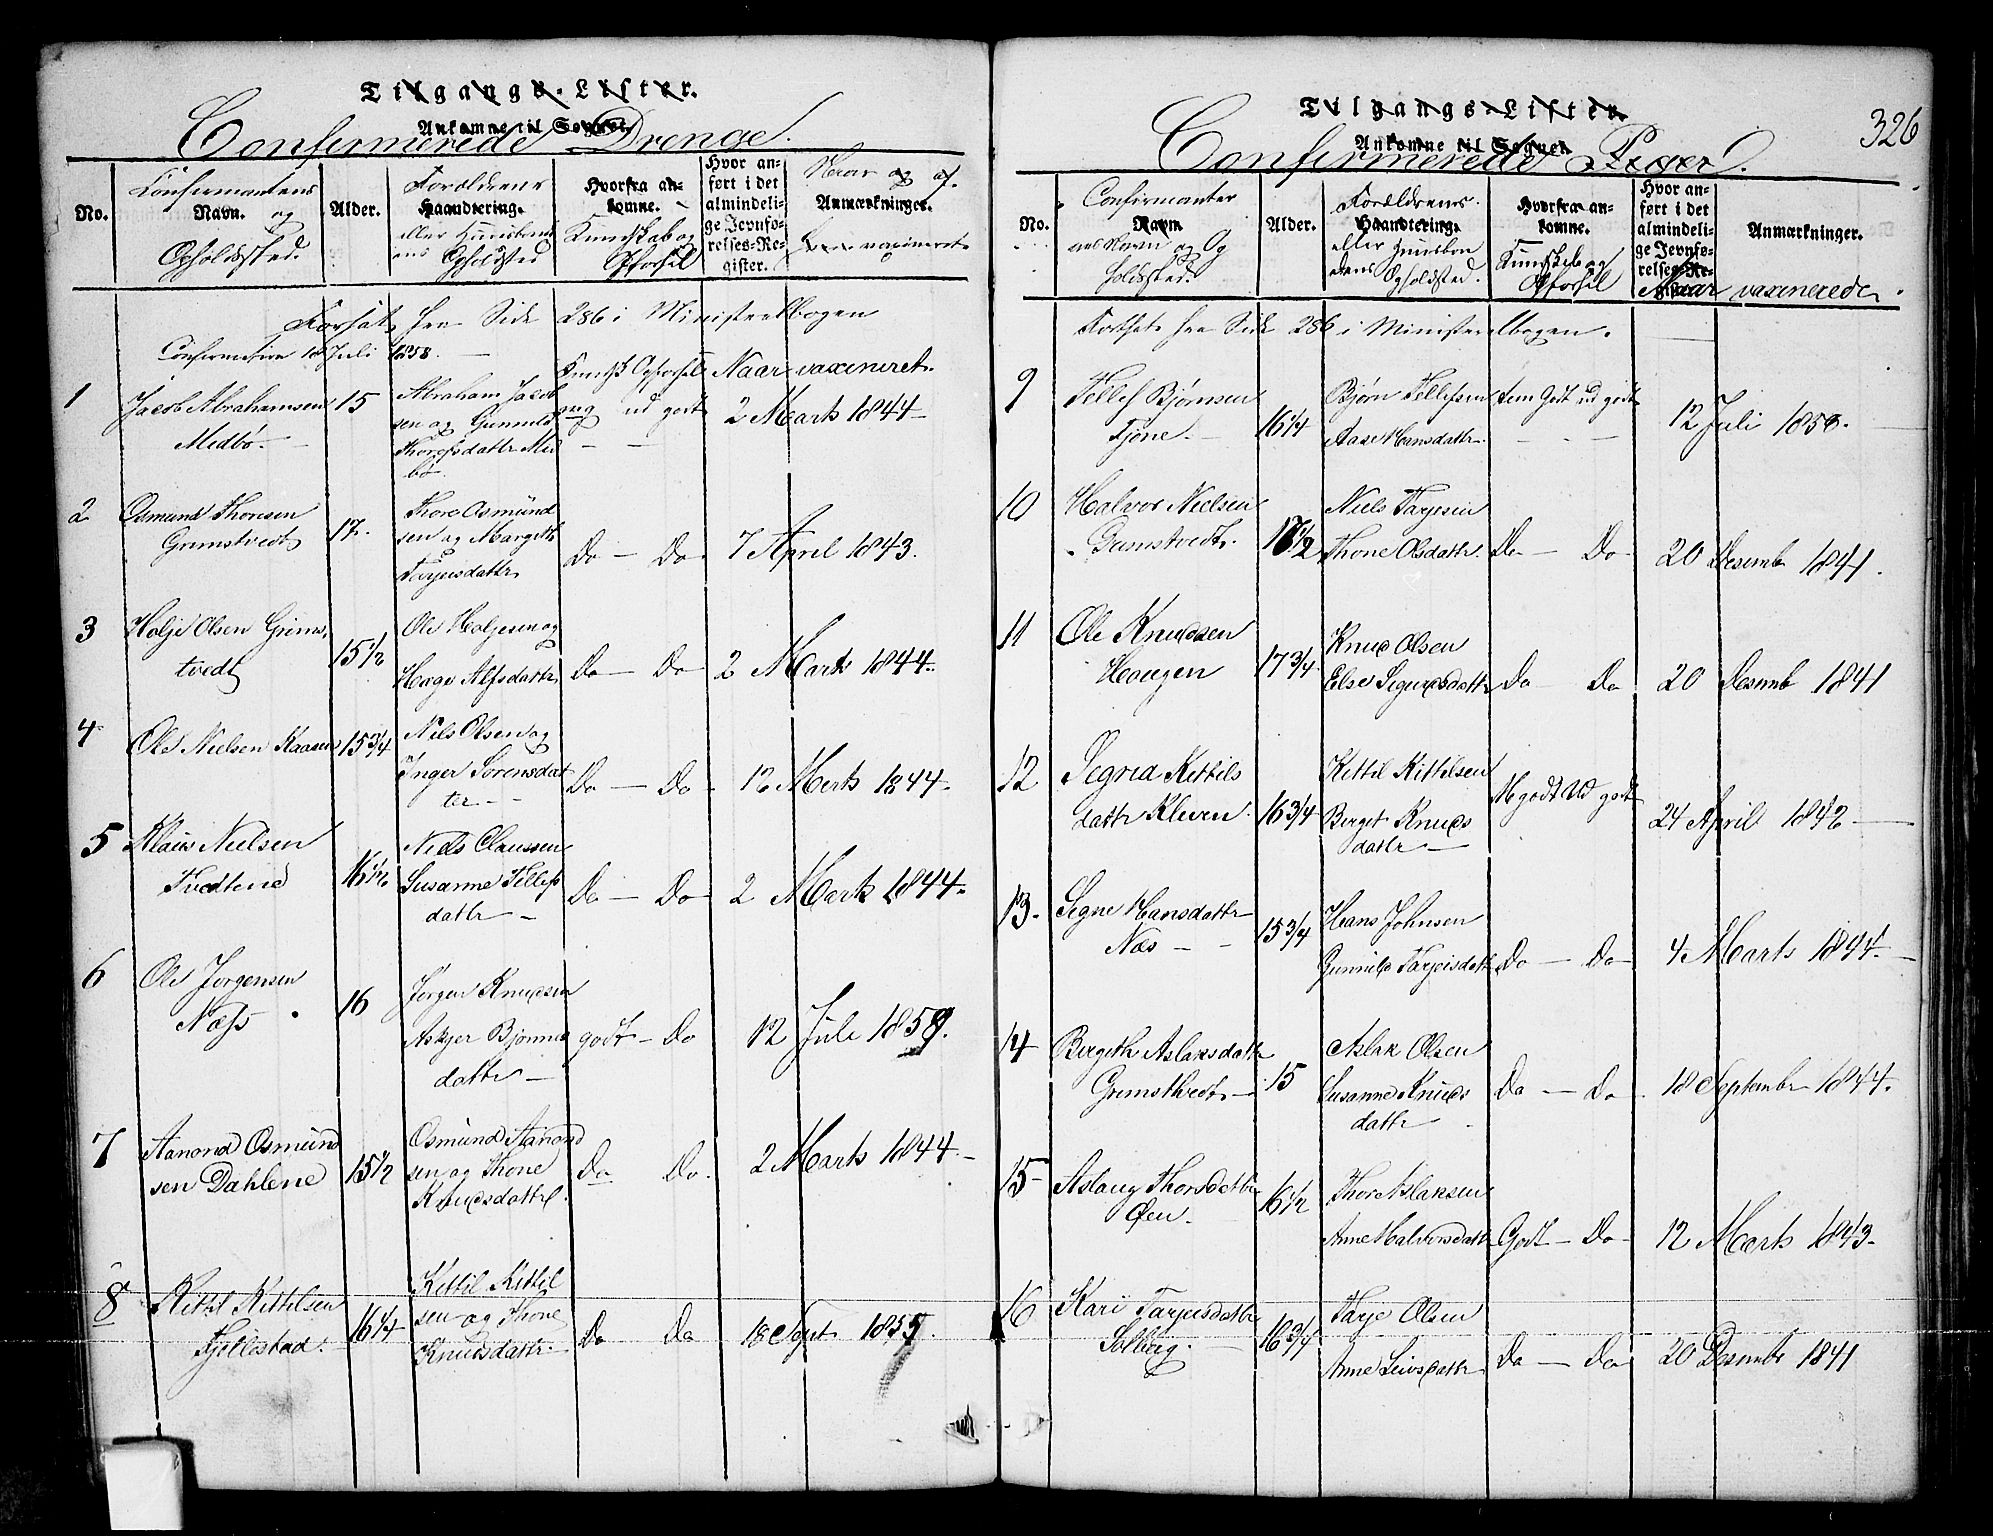 Tilgangs-Lister.
Ankomne til Sognet.
Confirmerede Drenge.
No.
Confirmantens
Navn.
og
Opholdssted.
Alder.
Forældrene
Haandtering.
eller Huusbon
dens Opholdsted
Hvorfra an-
komne.
Kundskab og
Opforsel
Hvor an-
ført i det
almindeli-
ge Jevnfø-
relses-Re-
gister.
Naar og af
Anmærkninger.
vaxineret
Forsat fra Side 286 i Ministerialbogen
Confirmation 18 Juli 1858.
Kundsk Opforsel Naar vaxineret.
1
Jacob Abrahamsen
Medbø.
15
Abraham Jacob
sen og Gunnild
Thorefsdattr Med
bø.
mg ud godt
2 Marts 1844
2
Osmund Thoresen
Grimstvedt
17.
Thore Osmund
sen og Margith
Tarjusdattr
Do - Do
7 April 1843.
3
Holje Olsen Grims
tvedt
15 1/2
Ole Holjesen og
Hæge Alfsdattr
Do - Do
2 Marts 1844.
4
Ole Nielsen Kaasen
15 3/4
Nils Olsen og
Inger Sorensdat
ter
Do - Do
12 Marts 1844.
5
Klaus Nielsen
Tvedtene
16 1/2
Niels Claussen
Susanne Tellefs
dattr
Do - Do
2 Marts 1844.
6
Ole Jorgensen
Næss
16
Jørgen Knudsen
Askjer Bjønns
dattr
godt - Do
12 Juli 1859.
7
Aanond Osmund
sen Dahlene
15 1/2
Osmund Aanond
sen og Thone
Knudsdattr.
Do Do.
2 Marts 1844.
8
Kittil Kittilsen
Fjellestad.
16 1/4
Kittil Kittil
sen og Thone
Knudsdattr.
Do Do
18 Sept 1855.
326
Tilgangs-Lister.
Ankomne til Sognet.
Confirmerede Piger.
No.
Confirmanter
Navn.
nes Navn og Op
holdssted.
Alder.
Forældrenes
Haandtering.
eller Huusbon
dens Opholdsted.
Hvorfra an-
komne.
Kundskab og
Opforsel
Hvor an-
ført i det
almindeli-
ge Jevnfø-
relses-Re-
Anmærkninger.
Naar vaxinerede.
Forthsat fra Side 286 i Ministerialbogen.
9
Tellef Bjørnsen
Tjøne.
16 1/4
Bjørn Tellefsen
Aase Hansdattr.
Tem Godt ud godt
12 Juli 1850.
10
Halvor Nielsen
Grimstvedt.
17 1/2
Niels Tarjesen
Thone Olsdattr.
Do - Do
20 Desemb 1841.
11
Ole Knudsen
Haugen
17 3/4
Knud Olsen
Else Sigurdsdattr
Do Do
20 Desemb 1841
12
Segrid Kittils
dattr Kleven.
16 3/4
Kittil Kittilsen
Berget Knuds
dattr
M godt Ud godt
24 April 1842
13.
Segne Hansdattr
Næs
15 3/4
Hans Johnsen
Gunnild Tarjeisdattr
Do - Do
4 Marts 1844.
14
Bergith Aslaksdattr
Grimsthvedt.
15
Aslak Olsen
Susanne Knuds
dattr
Do - Do
18 September 1844.
15
Aslaug Thorsdatter
Øen.
16 1/2
Thor Aslaksen
Anne Halvorsdattr
Godt - Do
12 Marts 1843.
16
Kari Tarjusdatter
Solberg.
16 3/4
Tarje Olsen
Anne Leivsdattr
Do - Do
20 Desemb 1841